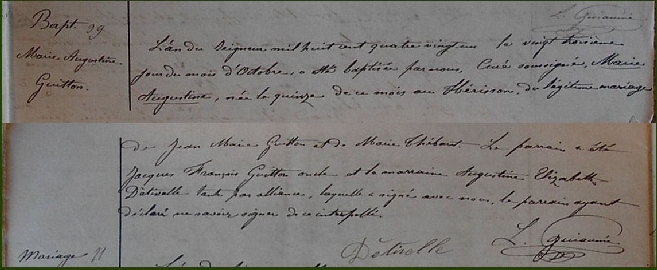 Bapt. 29
Marie Augustine
Guitton.
L. Guiranne
L'an du Seigneur mil huit cent quatre vingt un le vingt troisième
jour du mois d'Octobre, a été baptisée par nous, Curé soussigné, Marie
Augustine, née le quinze de ce mois au Hérisson, du légitime mariage
de Jean Marie Guitton et de Marie Thébaut. Le parrain a été
Jacques François Guitton oncle et la marraine Augustine Elizabeth
Détivelle tante par alliance, laquelle a signé avec nous, le parrain ayant
déclaré ne savoir signer de ce interpellé.
Détivelle
L. Guiranne
Mariage 11